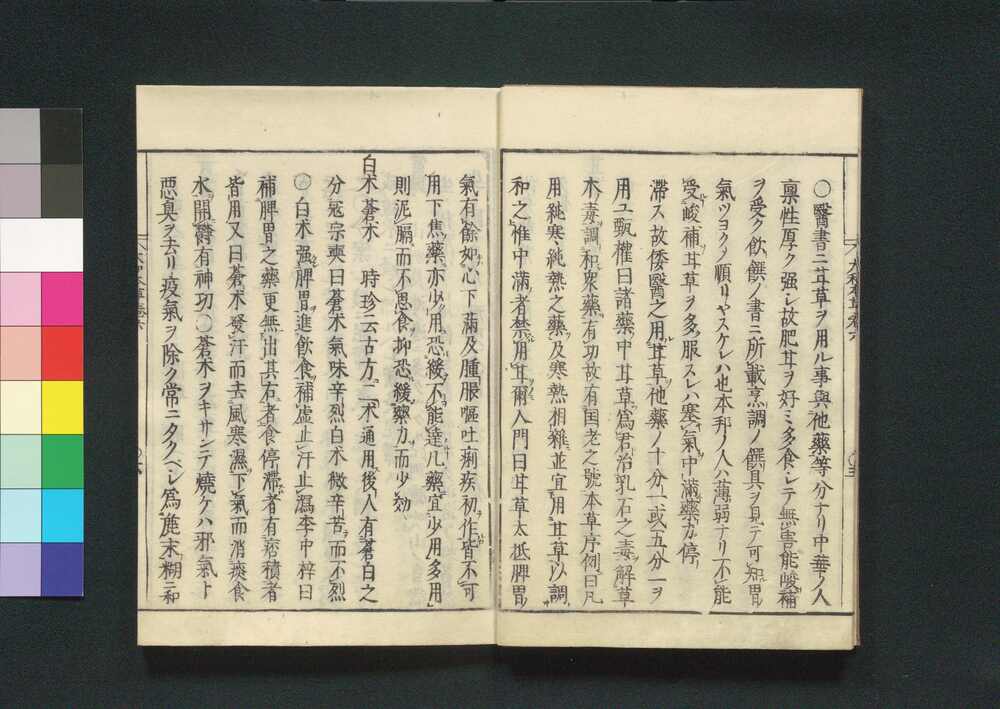 〇醫書ニ甘草ヲ用ル事與他藥等分ナリ中華ノ人
稟性厚ク强シ故肥甘ヲ好ミ多食シテ無害能峻補
ヲ受ク飲饌ノ書ニ所載烹調ノ饌具ヲ見テ可知胃
氣ツヨクメ順リヤスケレハ也本邦ノ人ハ薄弱ナリ不能
受峻補甘草ヲ多服スレハ塞氣中滿藥力停
滯ス故倭醫之用甘草他藥ノ十分一或五分一ヲ
用ユ甄權曰諸藥中甘草爲君治乳石之毒解草
木毒調和衆藥有功故有国老之號本草序例曰凡
用純寒純熱之藥及寒熱相雜並宜用甘草以調
和之惟中滿者禁用甘爾入門曰甘草太抵脾胃
氣有餘如心下滿及腫脹嘔吐痢疾初作皆不可
用下焦藥亦少用恐緩不能達凡藥宜少用多用
則泥膈而不思食抑恐緩藥力而少効
白朮蒼朮 時珍云古方二朮通用後人有蒼白之
分寇宗奭曰蒼朮氣味辛烈白朮微辛苦而不烈
〇白朮强脾胃進飲食補虚止汗止瀉李中梓曰
補脾胃之藥更無出其右者食停滯者有痞積者
皆用又曰蒼朮發汗而去風寒濕下氣而消痰食
水開欝有神功〇蒼朮ヲキサンテ燒ケハ邪氣ト
惡臭ヲ去リ疫氣ヲ除ク常ニタクヘシ爲麁末糊ニ和